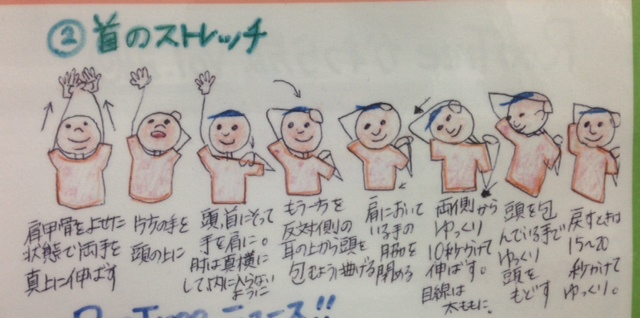 ② 首のストレッチ
肩甲骨をよせた
状態で両手を
真上に伸ばす
片方の手を
頭の上に
頭、首にそって
手を肩に。
肘は真横に
して内に入らない
ように
もう一方を
反対側の
耳の上から頭を
包むよう曲げる
肩において
いる手の
脇を
閉める
両側から
ゆっくり
10秒かけて
伸ばす。
目線は
太ももに。
頭を包
んでいる手で
ゆっくり
頭を
もどす
戻すときは
15〜20
秒かけて
ゆっくり。
ニュース!!